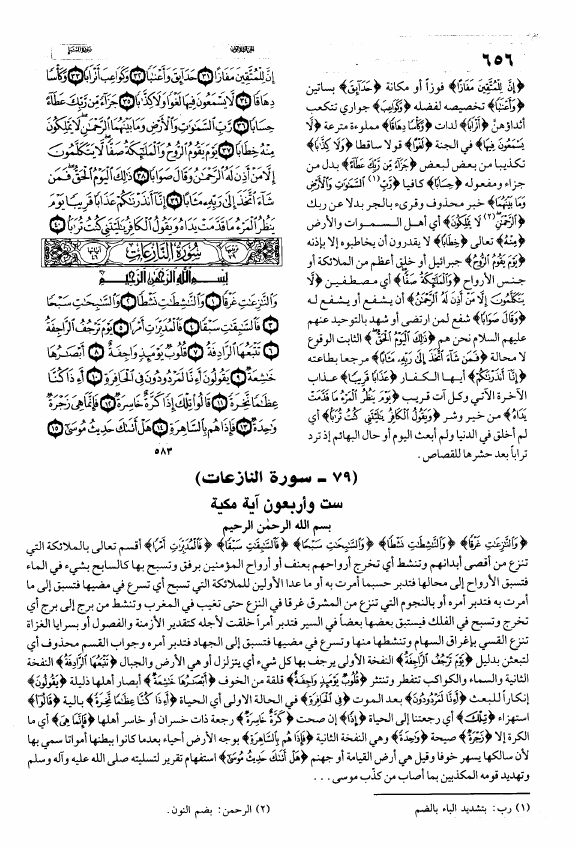 ٦٥٦
﴿إِنَّ لِلْمُتَّقِينَ مَفَازًا﴾ فوزاً أو مكانة ﴿حَدَائِقَ﴾ بساتين
﴿وَأَعْنَابًا﴾ تخصيصه لفضله ﴿وَكَوَاعِبَ﴾ جواري تتكعب
أثداؤهن ﴿أَتْرَابًا﴾ لدات ﴿وَكَأْسًا دِهَاقًا﴾ مملوءة مترعة ﴿لَّا
يَسْمَعُونَ فِيهَا﴾ في الجنة ﴿لَغْوًا﴾ قولا ساقطا ﴿وَلَا كِذَّابًا﴾
تكذيبا من بعض لبعض ﴿جَزَاءً مِّن رَّبِّكَ عَطَاءً﴾ بدل من
جزاء ومفعوله ﴿حِسَابًا﴾ كافيا ﴿رَّبِّ (١) السَّمَاوَاتِ وَالْأَرْضِ
وَمَا بَيْنَهُمَا﴾ خبر محذوف وقرىء بالجر بدلا عن ربك
﴿الرَّحْمَٰنِ (٢) لَا يَمْلِكُونَ﴾ أي أهل السموات والأرض
﴿مِنْهُ﴾ تعالى ﴿خِطَابًا﴾ لا يقدرون أن يخاطبوه إلا بإذنه
﴿يَوْمَ يَقُومُ الرُّوحُ﴾ جبرائيل أو خلق أعظم من الملائكة أو
جنس الأرواح ﴿وَالْمَلَائِكَةُ صَفًّا﴾ أي مصطفين ﴿لَّا
يَتَكَلَّمُونَ إِلَّا مَنْ أَذِنَ لَهُ الرَّحْمَٰنُ﴾ أن يشفع أو يشفع له
﴿وَقَالَ صَوَابًا﴾ شفع لمن ارتضى أو شهد بالتوحيد عنهم
عليهم السلام نحن هم ﴿ذَٰلِكَ الْيَوْمُ الْحَقُّ﴾ الثابت الوقوع
لا محالة ﴿فَمَن شَاءَ اتَّخَذَ إِلَىٰ رَبِّهِ مَآبًا﴾ مرجعا بطاعته
﴿إِنَّا أَنذَرْنَاكُمْ﴾ أيها الكفار ﴿عَذَابًا قَرِيبًا﴾ عذاب
الآخرة الآتي وكل آت قريب ﴿يَوْمَ يَنظُرُ الْمَرْءُ مَا قَدَّمَتْ
يَدَاهُ﴾ من خير وشر ﴿وَيَقُولُ الْكَافِرُ يَا لَيْتَنِي كُنتُ تُرَابًا﴾ أي
لم أخلق في الدنيا ولم أبعث اليوم أو حال البهائم إذ ترد
تراباً بعد حشرها للقصاص.
إِنَّ لِلْمُتَّقِينَ مَفَازًا ٣١ حَدَائِقَ وَأَعْنَابًا ٣٢ وَكَوَاعِبَ أَتْرَابًا ٣٣ وَكَأْسًا
دِهَاقًا ٣٤ لَّا يَسْمَعُونَ فِيهَا لَغْوًا وَلَا كِذَّابًا ٣٥ جَزَاءً مِّن رَّبِّكَ عَطَاءً
حِسَابًا ٣٦ رَّبِّ السَّمَاوَاتِ وَالْأَرْضِ وَمَا بَيْنَهُمَا الرَّحْمَٰنِ لَا يَمْلِكُونَ
مِنْهُ خِطَابًا ٣٧ يَوْمَ يَقُومُ الرُّوحُ وَالْمَلَائِكَةُ صَفًّا لَّا يَتَكَلَّمُونَ
إِلَّا مَنْ أَذِنَ لَهُ الرَّحْمَٰنُ وَقَالَ صَوَابًا ٣٨ ذَٰلِكَ الْيَوْمُ الْحَقُّ فَمَن
شَاءَ اتَّخَذَ إِلَىٰ رَبِّهِ مَآبًا ٣٩ إِنَّا أَنذَرْنَاكُمْ عَذَابًا قَرِيبًا يَوْمَ
يَنظُرُ الْمَرْءُ مَا قَدَّمَتْ يَدَاهُ وَيَقُولُ الْكَافِرُ يَا لَيْتَنِي كُنتُ تُرَابًا ٤٠
سُورَةُ النَّازِعَاتِ
بِسْمِ اللَّهِ الرَّحْمَٰنِ الرَّحِيمِ
وَالنَّازِعَاتِ غَرْقًا ١ وَالنَّاشِطَاتِ نَشْطًا ٢ وَالسَّابِحَاتِ سَبْحًا
٣ فَالسَّابِقَاتِ سَبْقًا ٤ فَالْمُدَبِّرَاتِ أَمْرًا ٥ يَوْمَ تَرْجُفُ الرَّاجِفَةُ
٦ تَتْبَعُهَا الرَّادِفَةُ ٧ قُلُوبٌ يَوْمَئِذٍ وَاجِفَةٌ ٨ أَبْصَارُهَا
خَاشِعَةٌ ٩ يَقُولُونَ أَءِنَّا لَمَرْدُودُونَ فِي الْحَافِرَةِ ١٠ أَءِذَا كُنَّا
عِظَامًا نَّخِرَةً ١١ قَالُوا تِلْكَ إِذًا كَرَّةٌ خَاسِرَةٌ ١٢ فَإِنَّمَا هِيَ زَجْرَةٌ
وَاحِدَةٌ ١٣ فَإِذَا هُم بِالسَّاهِرَةِ ١٤ هَلْ أَتَاكَ حَدِيثُ مُوسَىٰ ١٥
٥٨٣
(٧٩ - سورة النازعات)
ست وأربعون آية مكية
بسم الله الرحمن الرحيم
﴿وَالنَّازِعَاتِ غَرْقًا﴾ ﴿وَالنَّاشِطَاتِ نَشْطًا﴾ ﴿وَالسَّابِحَاتِ سَبْحًا﴾ ﴿فَالسَّابِقَاتِ سَبْقًا﴾ ﴿فَالْمُدَبِّرَاتِ أَمْرًا﴾ أقسم تعالى بالملائكة التي
تنزع من أقصى أبدانهم وتنشط أي تخرج أرواحهم بعنف أو أرواح المؤمنين برفق وتسبح بها كالسابح بشيء في الماء
فتسبق الأرواح إلى محالها فتدبر حسبما أمرت به أو ما عدا الأولين للملائكة التي تسبح أي تسرع في مضيها فتسبق إلى ما
أمرت به فتدبر أمره أو بالنجوم التي تنزع من المشرق غرقا في النزع حتى تغيب في المغرب وتنشط من برج إلى برج أي
تخرج وتسبح في الفلك فيستبق بعضها بعضاً في السير فتدبر أمراً خلقت لأجله كتقدير الأزمنة والفصول أو بسرايا الغزاة
تنزع القسي بإغراق السهام وتنشطها منها وتسرع في مضيها فتسبق إلى الجهاد فتدبر أمره وجواب القسم محذوف أي
لتبعثن بدليل ﴿يَوْمَ تَرْجُفُ الرَّاجِفَةُ﴾ النفخة الأولى يرجف بها كل شيء أي يتزلزل أو هي الأرض والجبال ﴿تَتْبَعُهَا الرَّادِفَةُ﴾ النفخة
الثانية والسماء والكواكب تنفطر وتنتثر ﴿قُلُوبٌ يَوْمَئِذٍ وَاجِفَةٌ﴾ قلقة من الخوف ﴿أَبْصَارُهَا خَاشِعَةٌ﴾ أبصار أهلها ذليلة ﴿يَقُولُونَ﴾
إنكاراً للبعث ﴿أَءِنَّا لَمَرْدُودُونَ﴾ بعد الموت ﴿فِي الْحَافِرَةِ﴾ في الحالة الاولى أي الحياة ﴿أَءِذَا كُنَّا عِظَامًا نَّخِرَةً﴾ بالية ﴿قَالُوا﴾
استهزاء ﴿تِلْكَ﴾ أي رجعتنا إلى الحياة ﴿إِذًا﴾ إن صحت ﴿كَرَّةٌ خَاسِرَةٌ﴾ رجعة ذات خسران أو خاسر أهلها ﴿فَإِنَّمَا هِيَ﴾ أي ما
الكرة إلا ﴿زَجْرَةٌ﴾ صيحة ﴿وَاحِدَةٌ﴾ وهي النفخة الثانية ﴿فَإِذَا هُم بِالسَّاهِرَةِ﴾ بوجه الأرض أحياء بعدما كانوا ببطنها أمواتا سمي بها
لأن سالكها يسهر خوفا وقيل هي أرض القيامة أو جهنم ﴿هَلْ أَتَاكَ حَدِيثُ مُوسَىٰ﴾ استفهام تقرير لتسليته صلى الله عليه وآله وسلم
وتهديد قومه المكذبين بما أصاب من كذّب موسى . . .
(١) رب: بتشديد الباء بالضم
(٢) الرحمن: بضم النون.